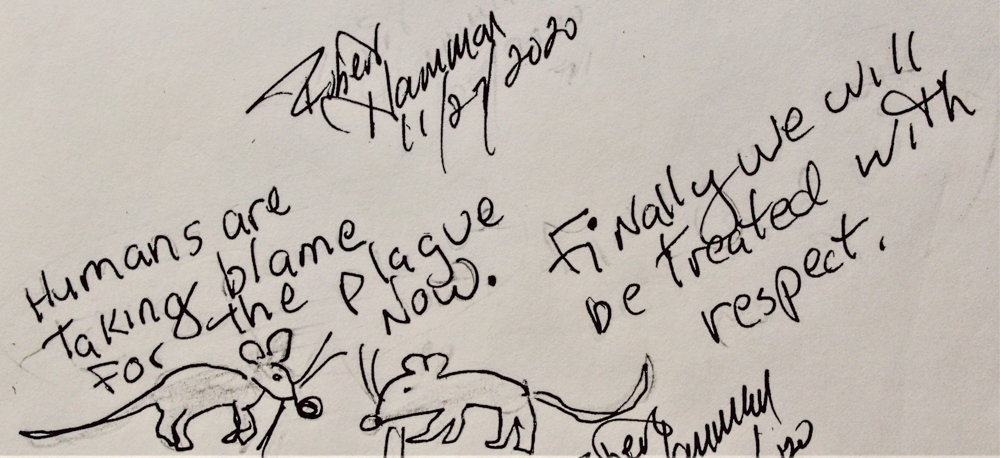 Robert
Hamman
11/27/2020
Humans are
taking blame
For the Plague
Now.
Finally we will
be treated with
respect.